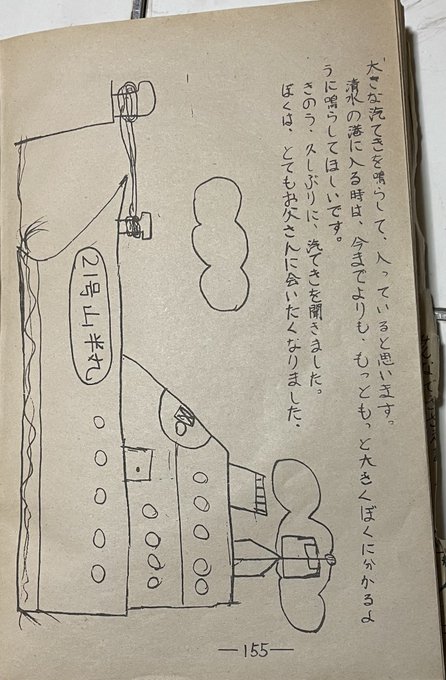 大きな汽てきを鳴らして、入っていると思います。
清水の港に入る時は、今までよりも、もっともっと大きくぼくに分かるよ
うに鳴らしてほしいです。
きのう、久しぶりに、汽てきを聞きました。
ぼくは、とてもお父さんに会いたくなりました。
21号山半丸
—155—